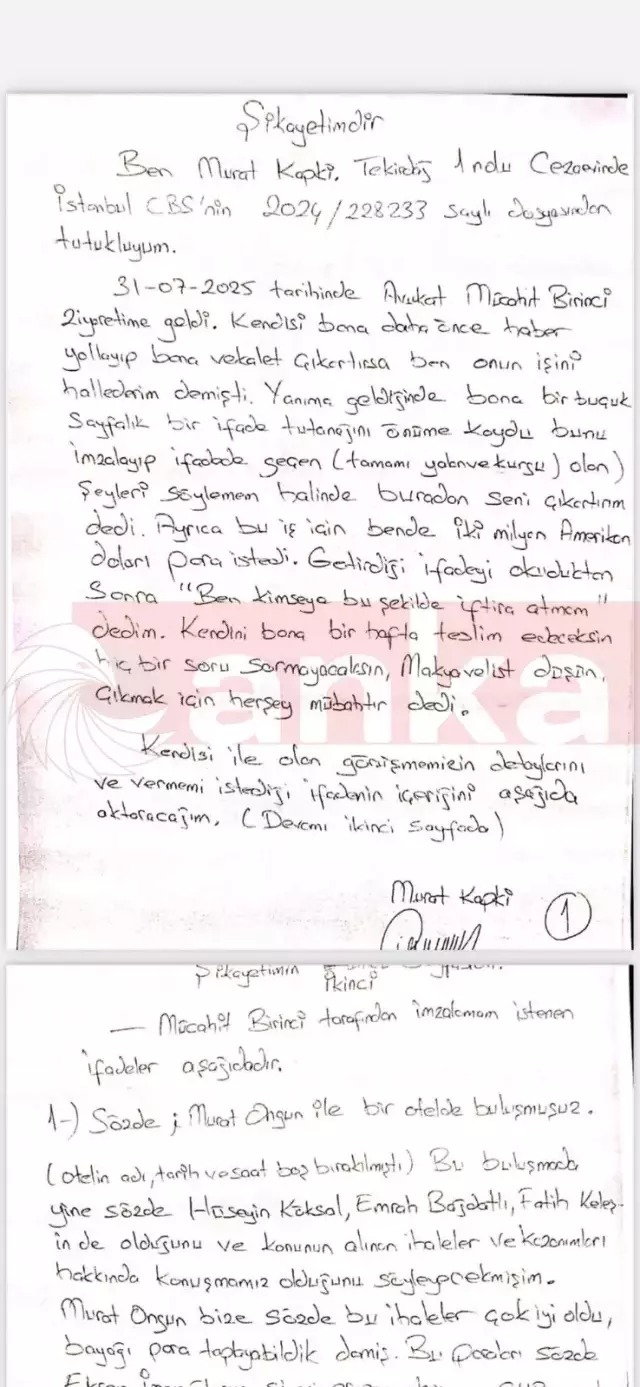 Şikayetimdir
Ben Murat Kapki. Tekirdağ 1 nolu Cezaevinde
İstanbul CBS'nin 2024/228233 sayılı dosyasından
tutukluyum.
31-07-2025 tarihinde Avukat Mücahit Birinci
Ziyaretime geldi. Kendisi bana daha önce haber
yollayıp bana vekalet çıkartırsa ben onun işini
hallederim demişti. Yanıma geldiğinde bana bir buçuk
Sayfalık bir ifade tutanağını önüme koydu bunu
imzalayıp ifadede geçen (tamamı yalan ve kurgu) olan
Şeyleri söylemem halinde buradan seni çıkartırım
dedi. Ayrıca bu iş için bende iki milyon Amerikan
doları para istedi. Getirdiği ifadeyi okuduktan
Sonra "Ben kimseye bu şekilde iftira atmam"
dedim. Kendini bana bir hafta teslim edeceksin
hiç bir soru sormayacaksın, Makyavelist düşün,
Çıkmak için herşey mübahtır dedi.
Kendisi ile olan görüşmemizin detaylarını
ve vermemi istediği ifadenin içeriğini aşağıda
aktaracağım. (Devamı ikinci sayfada)
Murat Kapki
1
anka
Şikayetimin İkinci
— Mücahit Birinci tarafından imzalamam istenen
ifadeler aşağıdadır.
1-) Sözde ; Murat Ongun ile bir otelde buluşmuşuz.
(otelin adı, tarih ve saat boş bırakılmıştı) Bu buluşmada
yine sözde Hüseyin Köksal, Emrah Bağdatlı, Fatih Keleş-
in de olduğunu ve konunun alınan ihaleler ve kazanımları
hakkında konuşmamız olduğunu söyleyecekmişim.
Murat Ongun bize sözde bu ihaleler çok iyi oldu,
bayağı para toplayabildik demiş. Bu paraları sözde